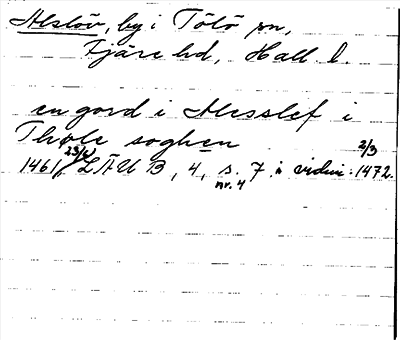 Alslöv, by i Tölö sn,
Fjäre hd, Hall l.
en gord i Alesslef i
Thole soghen
1461 23/6 LÄUB, 4, s. 7 i vidim. 2/3 1472.
nr. 4